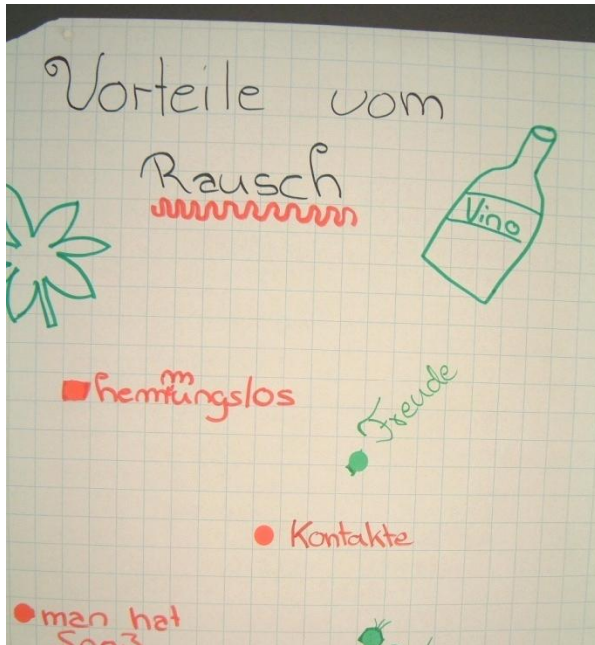 Vorteile vom
Rausch
Vino
hemmungslos
Freude
Kontakte
man hat